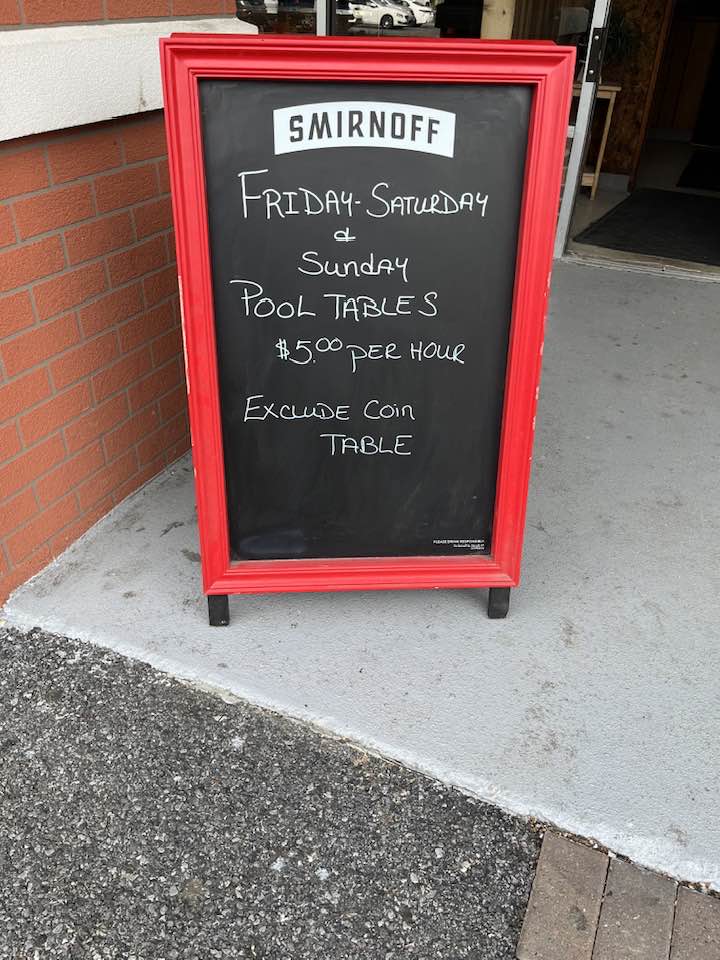 SMIRNOFF
FRIDAY-SATURDAY
&
SundAY
POOL TABLES
$5.00 PER HOUR
EXCLUDE COIN
TABLE
PLEASE DRINK RESPONSIBLY